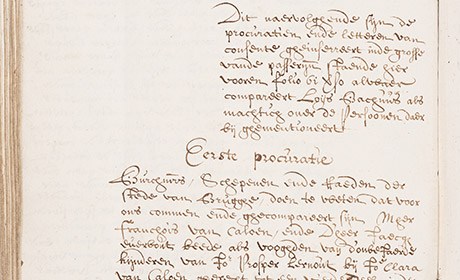 Dit naervolghende sijn de
procuratien ende letteren van
consente gheinserreert inde grosse
vande passerijn staende hier
vooren folio bi vso alwaer
compareert Loijs Bachuus als
machtich over de persoonen daer
bij ghementioneert
Eerste procuratie
Burchmrs, Schepenen ende Raeden der
stede van Brugghe, doen te weten dat voor
ons commen ende ghecompareert sijn Mher
Franchois van Caloen, ende Dheer
beede als vooghden van
kijnderen van Jor Prosper bij Jo Clara
van Caloen